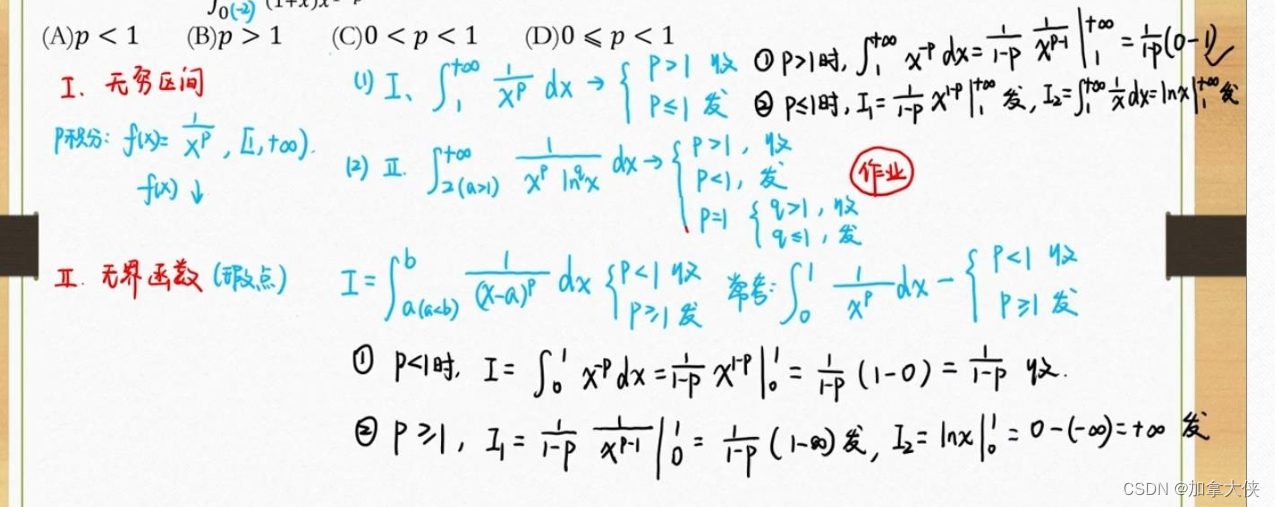 ∫₀₍₋₂₎ (1+x)x
(A)p < 1 (B)p > 1 (C)0 < p < 1 (D)0 ⩽ p < 1
I. 无穷区间
P积分: f(x)= 1/x^p , [1,+∞).
f(x) ↓
(1) I、 ∫₁^{+∞} 1/x^p dx → { P>1 收
P≤1 发
① P>1时, ∫₁^{+∞} x^{-p} dx = 1/(1-p) 1/x^{p-1} |₁^{+∞} = 1/(1-p) (0-1) ✓
② P≤1时, I₁= 1/(1-p) x^{1-p} |₁^{+∞} 发, I₂=∫₁^{+∞} 1/x dx=lnx|₁^{+∞} 发
(2) II. ∫_{2(a>1)}^{+∞} 1/(x^p ln^q x) dx → { P>1, 收
P<1, 发
P=1 { q>1, 收
q≤1, 发
作业
II. 无界函数 (瑕点)
I = ∫_{a(a<b)}^b 1/(x-a)^p dx { P<1 收
P≥1 发
常考: ∫₀¹ 1/x^p dx - { P<1 收
P≥1 发
① P<1时, I = ∫₀¹ x^{-p} dx = 1/(1-p) x^{1-p} |₀¹ = 1/(1-p) (1-0) = 1/(1-p) 收.
② P≥1, I₁ = 1/(1-p) 1/x^{p-1} |₀¹ = 1/(1-p) (1-∞) 发, I₂ = lnx|₀¹ = 0-(-∞)=+∞ 发
CSDN @加拿大侠